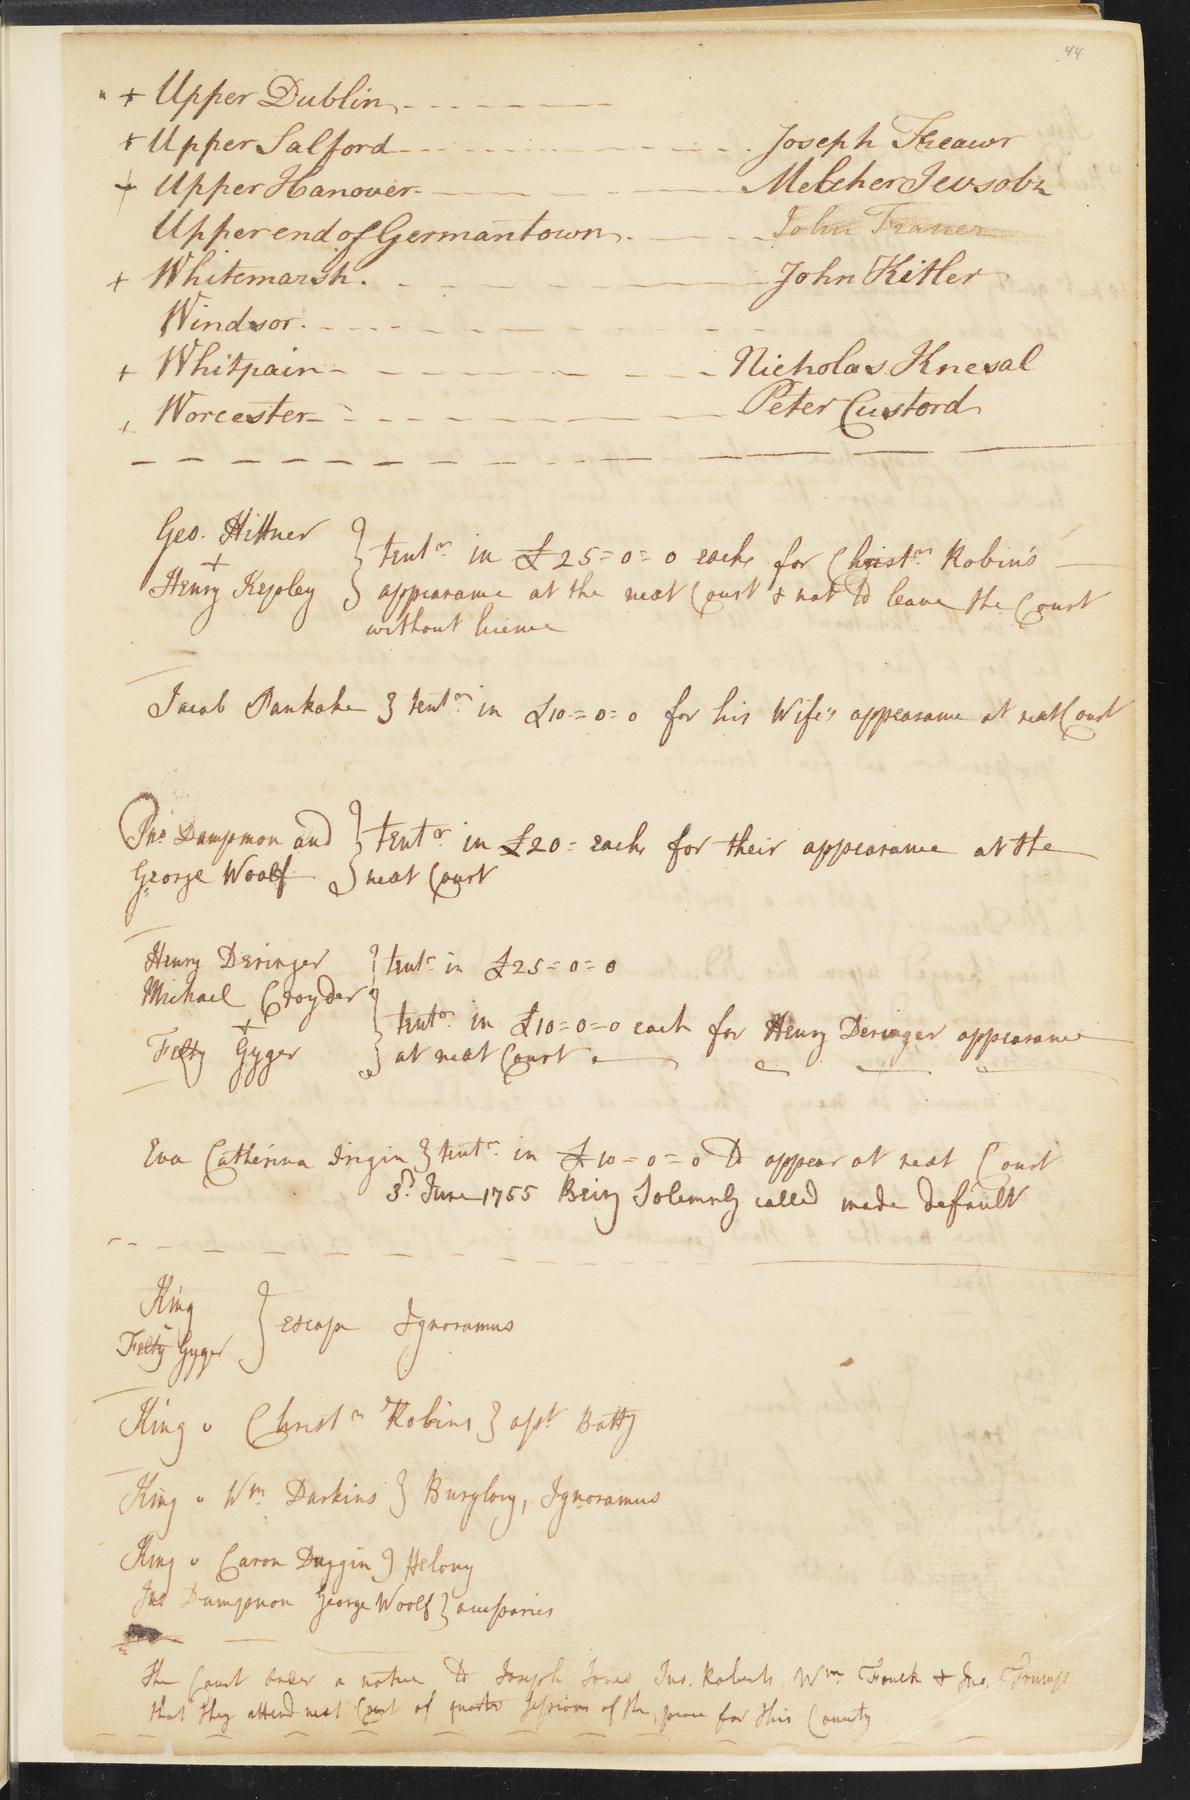 44
+ Upper Dublin
+ Upper Salford Joseph
+ Upper Hanover Melcher
Upper end of Germantown John
+ Whitemarsh John Kitler
Windsor
+ Whitpain Nicholas Knesal
Worcester Peter Custord
Geo. Hittner
+
Henry Kepley
tentr in £25=0=0 each for Christr Robin's
appearance at the next Court & not to leave the Court
without licence
Jacob Pankake } tentr in £10=0=0 for his Wife's appearance at next Court
Jno Dampmon and
George Woolf
tentr in £20= each for their appearance at the
next Court
Henry Deringer } tentr in £25=0=0
Michael Croyder
+
Felty Gyger
tentr in £10=0=0 each for Henry Deringer appearance
at next Court
Eva Catherina Irigin } tentr in £10=0=0 to appear at next Court
3d June 1755 Being Solemnly called made default
King
v
Felty Gyger
} escape Ignoramus
King v Christr Robins } asst Batty
King v Wm Darkins } Burglory, Ignoramus
King v Caron Duggin } Felony
Jno Dampmon George Woolf } accessaries
The Court order a notice to Joseph Jones Jno. Roberts Wm Fouck & Jno.
that they attend next Court of quarter Sessions of the peace for this County